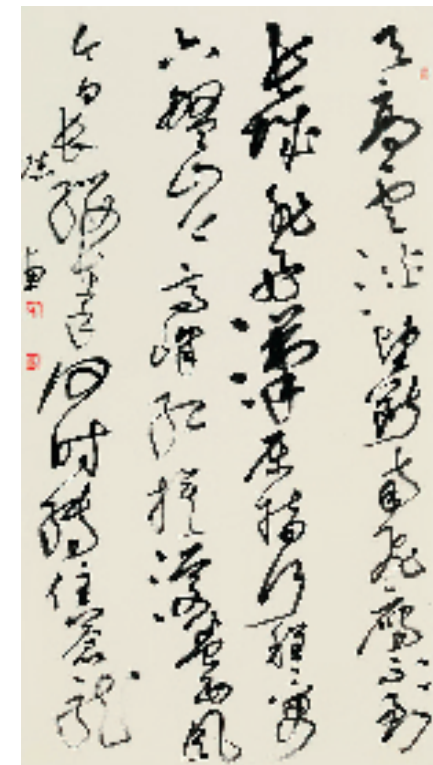 天高雲淡望斷南飛雁不到
長城非好漢屈指行程二萬
六盤山上高峰紅旗漫卷西風
今日长纓在手何时縛住蒼龍